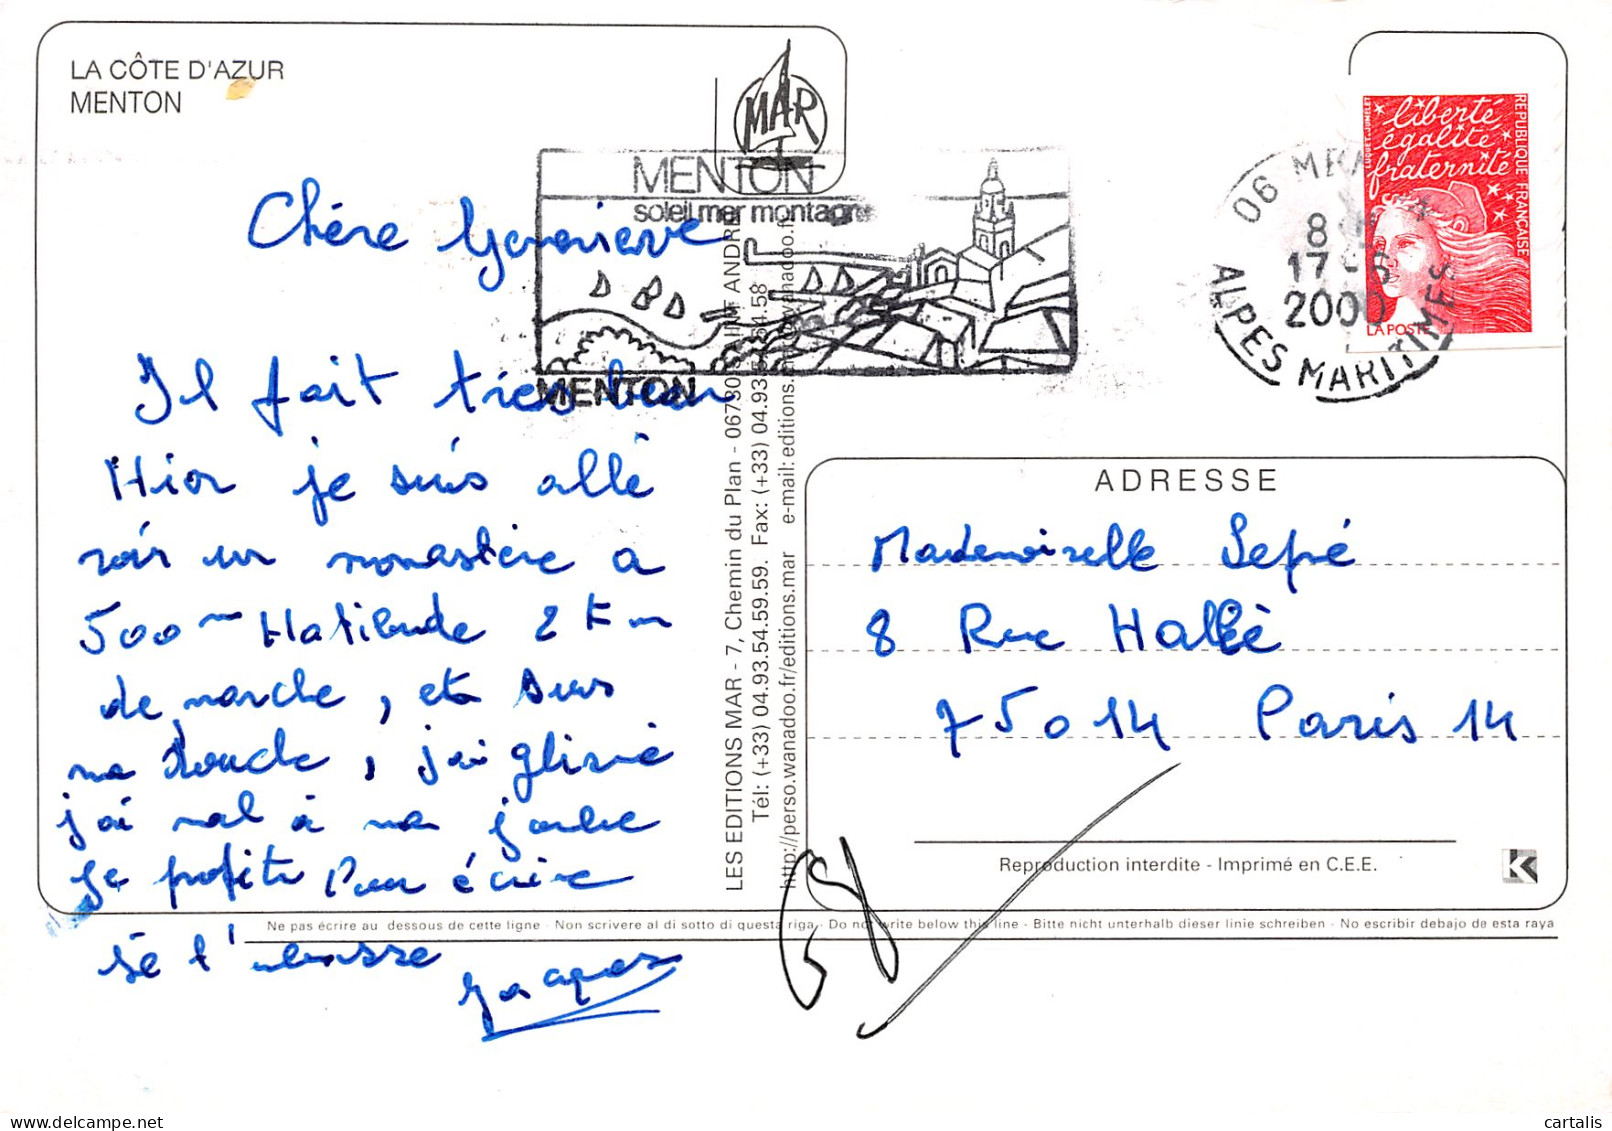 LA CÔTE D'AZUR
MENTON
MAR
MENTON
soleil mer montagne
MENTON
06 MENTON
8
17 6
2000
ALPES MARITIMES
liberté
égalité
fraternité
REPUBLIQUE FRANÇAISE
LUQUET-JUMELET
LA POSTE
Chère Genevieve
Il fait très beau
Hier je suis allé
voir un monastère a
500 m d'altitude 2 Km
de marche, et sur
ma douche, j'ai glissé
j'ai mal à ma jambe
Je profite pour écrire
Je t'embrasse
Jacques
LES EDITIONS MAR - 7, Chemin du Plan - 06730 SAINT ANDRE
Tél: (+33) 04.93.54.59.59. Fax: (+33) 04.93.54.58
http://perso.wanadoo.fr/editions.mar e-mail: editions.mar@wanadoo.fr
ADRESSE
Mademoiselle Sepré
8 Rue Hallé
75014 Paris 14
Reproduction interdite - Imprimé en C.E.E.
K
Ne pas écrire au dessous de cette ligne - Non scrivere al di sotto di questa riga - Do not write below this line - Bitte nicht unterhalb dieser linie schreiben - No escribir debajo de esta raya
cartalis
delcampe.net